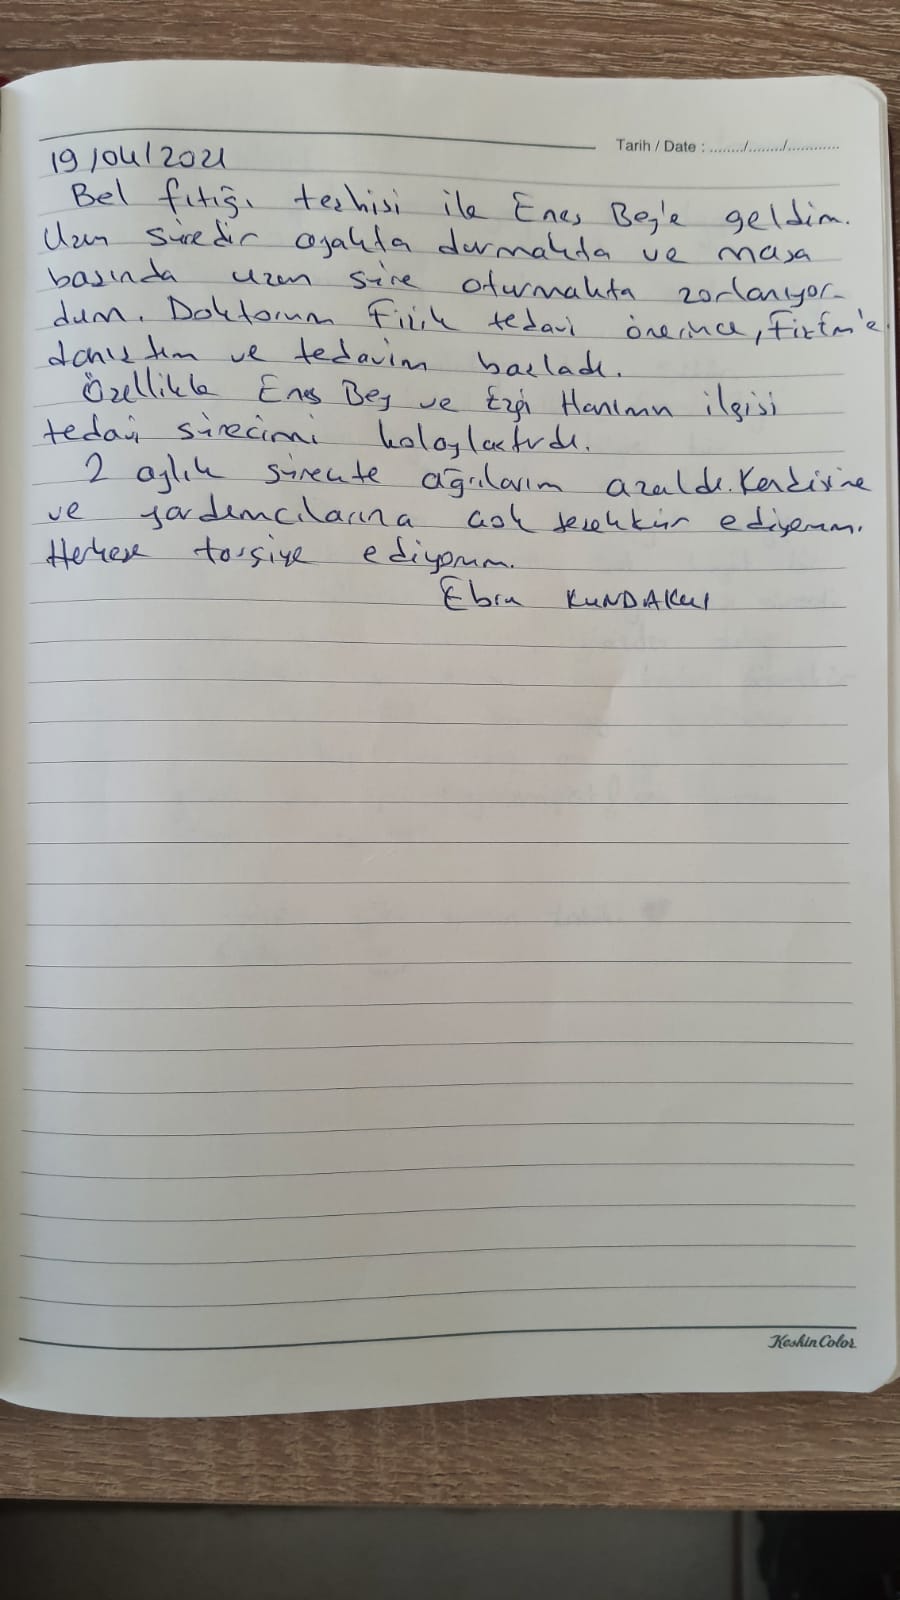 Tarih / Date : ......../......../............
19/04/2021
Bel fıtığı teşhisi ile Enes Bey'e geldim.
Uzun süredir ayakta durmakta ve masa
başında uzun süre oturmakta zorlanıyor-
dum. Doktorum Fizik tedavi önerince, Fizfm'e
danıştım ve tedavim başladı.
Özellikle Enes Bey ve Ezgi Hanımın ilgisi
tedavi sürecimi kolaylaştırdı.
2 aylık süreçte ağrılarım azaldı. Kendisine
ve yardımcılarına çok teşekkür ediyorum.
Herkese tavsiye ediyorum.
Ebru KUNDAKCI
KeskinColor